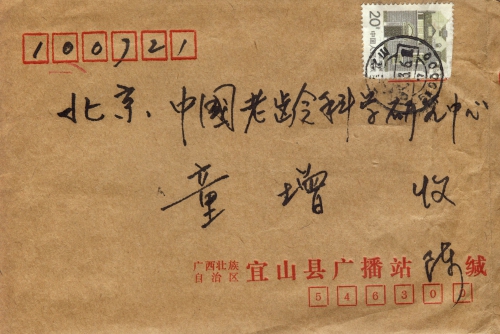 100721
20分
中国人民邮政
北京.中国老龄科学研究中心
童增 收
广西壮族自治区 宜山县广播站 陈 缄
546300